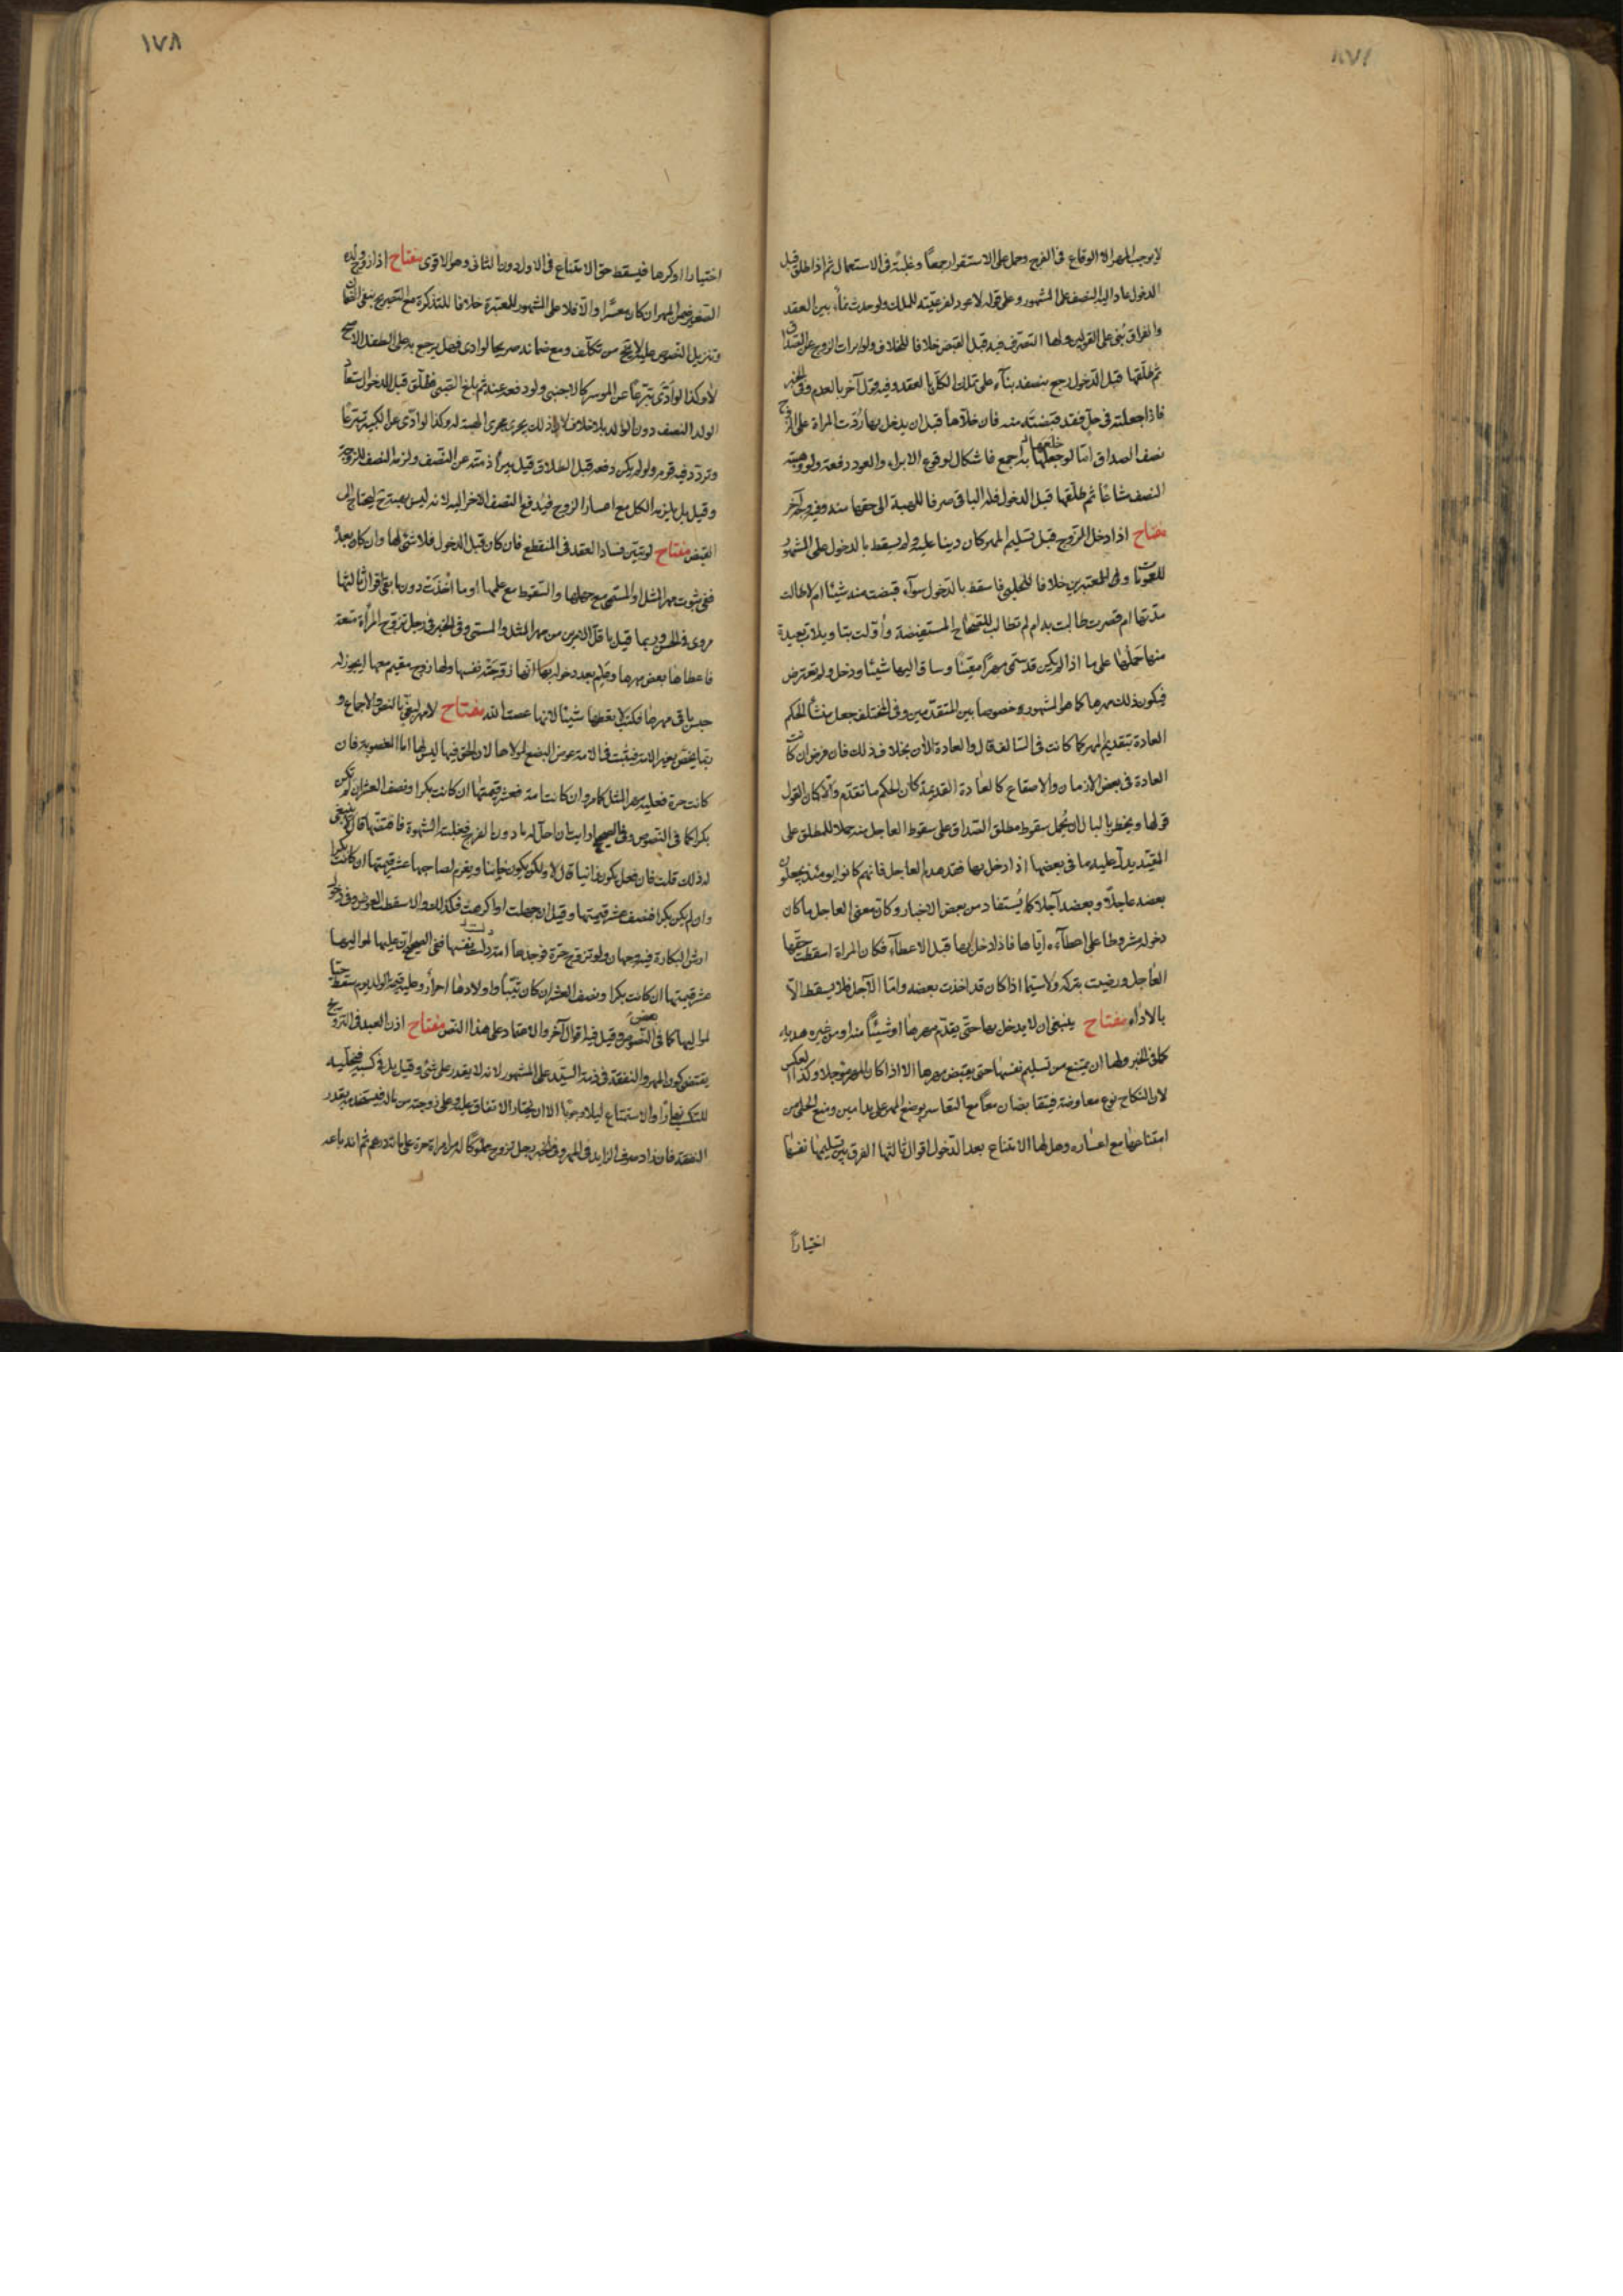 لا يوجب المهر الا الوقاع فى الفرج وحمل على الاستقرار جمعاً وغلبته فى الاستعمال ثم اذا طلق قبل
الدخول عاد اليه النصف على المشهور وعلى قوله لا عود لفرعيته للملك ولو حدث نماء بين العقد
والفراق بنى على القولين ولها التصرف فيه قبل القبض خلافا للخلاف ولو ابرات الزوج عن الصداق
ثم طلقها قبل الدخول رجع بنصفه بناء على تملك الكل بالعقد وفيه قول آخر بالعدم وفى الخبر
فاذا جعلته فى حل فقد قبضته منه فان خلاها قبل ان يدخل بها ردت المراة على الزوج
نصف الصداق اما لو خلعها به اجمع فاشكال لوقوع الابراء والعود دفعة ولو وهبته
النصف مشاعا ثم طلقها قبل الدخول فله الباقى صرفا للهبة الى حقها منه وفيه وجه آخر
مفتاح اذا دخل الزوج قبل تسليم المهر كان دينا عليه ولم يسقط بالدخول على المشهور
للعمومات والمعتبرين خلافا للحلبى فاسقط بالدخول سواء قبضت منه شيئا ام لا طالت
مدتها ام قصرت طالبت به ام لم تطالب للصحاح المستفيضة واولت بتاويلات بعيدة
منها حملها على ما اذا لم يكن قد سمى مهرا معينا وساق اليها شيئا ودخل ولم تعترض
فيكون ذلك مهرها كما هو المشهور وخصوصا بين المتقدمين وفى المختلف جعل منشأ الحكم
العادة بتقديم المهر كما كانت فى السالف قال والعادة الآن بخلاف ذلك فان فرض ان كانت
العادة فى بعض الازمان والاصقاع كالعادة القديمة كان الحكم ما تقدم والا كان القول
قولها ويخطر بالبال ان يحمل سقوط مطلق الصداق على سقوط العاجل منه حملا للمطلق على
المقيد يدل عليه ما فى بعضها اذا دخل بها فقد هدم العاجل فانهم كانوا يومئذ يجعلون
بعضه عاجلا وبعضه آجلا كما يستفاد من بعض الاخبار وكان معنى العاجل ما كان
دخوله مشروطا على اعطاءه اياها فاذا دخل بها قبل الاعطاء فكان المراة اسقطت حقها
العاجل ورضيت بتركه ولا سيما اذا كان قد اخذت بعضه واما الآجل فلا يسقط الا
بالاداء مفتاح ينبغى ان لا يدخل بها حتى يقدم مهرها او شيئاً منه او من غيره هدية
كما فى الخبر ولها ان تمتنع من تسليم نفسها حتى تقبض مهرها الا اذا كان المهر مؤجلا وكذا العكس
لان النكاح نوع معاوضة فيتقابضان معا مع التعاسر بوضع المهر على يد امين ومنع الحلى من
امتناعها مع اعساره وهل لها الامتناع بعد الدخول اقوال ثالثها الفرق بين تسليمها نفسها
اختياراً
١٧٨
اختيارا او كرها فيسقط حق الامتناع فى الاول دون الثانى وهو الاقوى مفتاح اذا زوج ولده
الصغير ضمن المهر ان كان معسرا والا فلا على المشهور للمعتبرة خلافا للتذكرة مع التصريح بنفى الضمان
وتنزيل النصوص عليه لا يخ من تكلف ومع ضمانه صريحا لو ادى فهل يرجع به على الطفل الاصح
لا وكذا لو ادى تبرعاً عن الموسر كالاجنبى ولو دفعه عنه ثم بلغ الصبى فطلق قبل الدخول استعاد
الولد النصف دون الوالد بلا خلاف لان ذلك يجرى مجرى الهبة له وكذا لو ادى عن الكبير تبرعا
وتردد فيه قوم ولو لم يكن دفعه قبل الطلاق قيل يبرأ ذمته عن النصف ولزمه النصف للزوجة
وقيل بل يلزمه الكل مع اعسار الزوج فيدفع النصف الاخر اليه لانه ليس بهبة حتى يحتاج الى
القبض مفتاح لو تبين فساد العقد فى المنقطع فان كان قبل الدخول فلا شئ لها وان كان بعده
ففى ثبوت مهر المثل او المسمى مع جهلها والسقوط مع علمها او ما اخذت دون ما بقى اقوال ثالثها
مروى فى الحسن وربما قيل باقل الامرين من مهر المثل والمسمى وفى الخبر فى رجل تزوج المرأة متعة
فاعطاها بعض مهرها وعلم بعد دخوله بها انها زوجته نفسها ولها زوج مقيم معها ايجوز له
حبس باقى مهرها فكتب لا يعطها شيئا لانها عصت الله مفتاح لا مهر لبغى بالنص والاجماع و
ربما يخص بغير الامة فيثبت فى الامة عوض البضع لمولاها لان الحق فيها ليس لها اما المغصوبة فان
كانت حرة فعليه مهر المثل كما مر وان كانت امة فعشر قيمتها ان كانت بكرا ونصف العشر ان لم تكن
بكرا كما فى النصوص وفى الصحيح ارايت ان احل له ما دون الفرج فغلبت الشهوة فافتضها قال لا ينبغى
له ذلك قلت فان فعل يكون زانيا قال لا ولكن يكون خاينا ويغرم لصاحبها عشر قيمتها ان كانت بكرا
وان لم يكن بكرا فنصف عشر قيمتها وقيل ان جهلت او اكرهت فكذلك والا سقط العوض وفى دخول
ارش البكارة فيه وجهان ولو تزوج حرة فوجدها امة دلست نفسها ففى الصحيح ان عليها لمواليها
عشر قيمتها ان كانت بكرا ونصف العشر ان كان ثيبا واولادها احرار وعليه قيمة الولد يوم سقط حيا
لمواليها كما فى النصوص وقيل فيه اقوال آخر والاعتماد على هذا النص مفتاح اذن العبد فى التزويج
يقتضى كون المهر والنفقة فى ذمة السيد على المشهور لانه لا يقدر على شئ وقيل بل فى كسبه فيخليه
للتكسب نهارا والاستمتاع ليلا وجوبا الا ان يختار الانفاق عليه وعلى زوجته من ماله فيستخدمه بقدر
النفقة فان زاد صرف الزايد فى المهر وفى الخبر رجل تزوج مملوكا له امراة حرة على مائة درهم ثم انه باعه